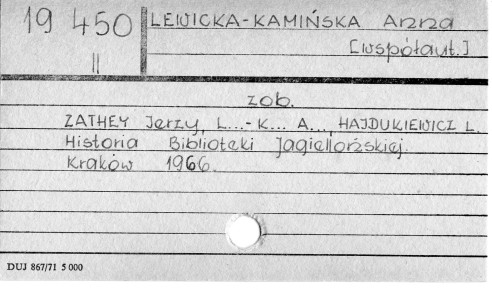 19 450
II
LEWICKA-KAMIŃSKA Anna
[współaut.]
zob.
ZATHEY Jerzy, L...-K... A..., HAJDUKIEWICZ L.
Historia Biblioteki Jagiellońskiej.
Kraków 1966.
DUJ 867/71 5 000